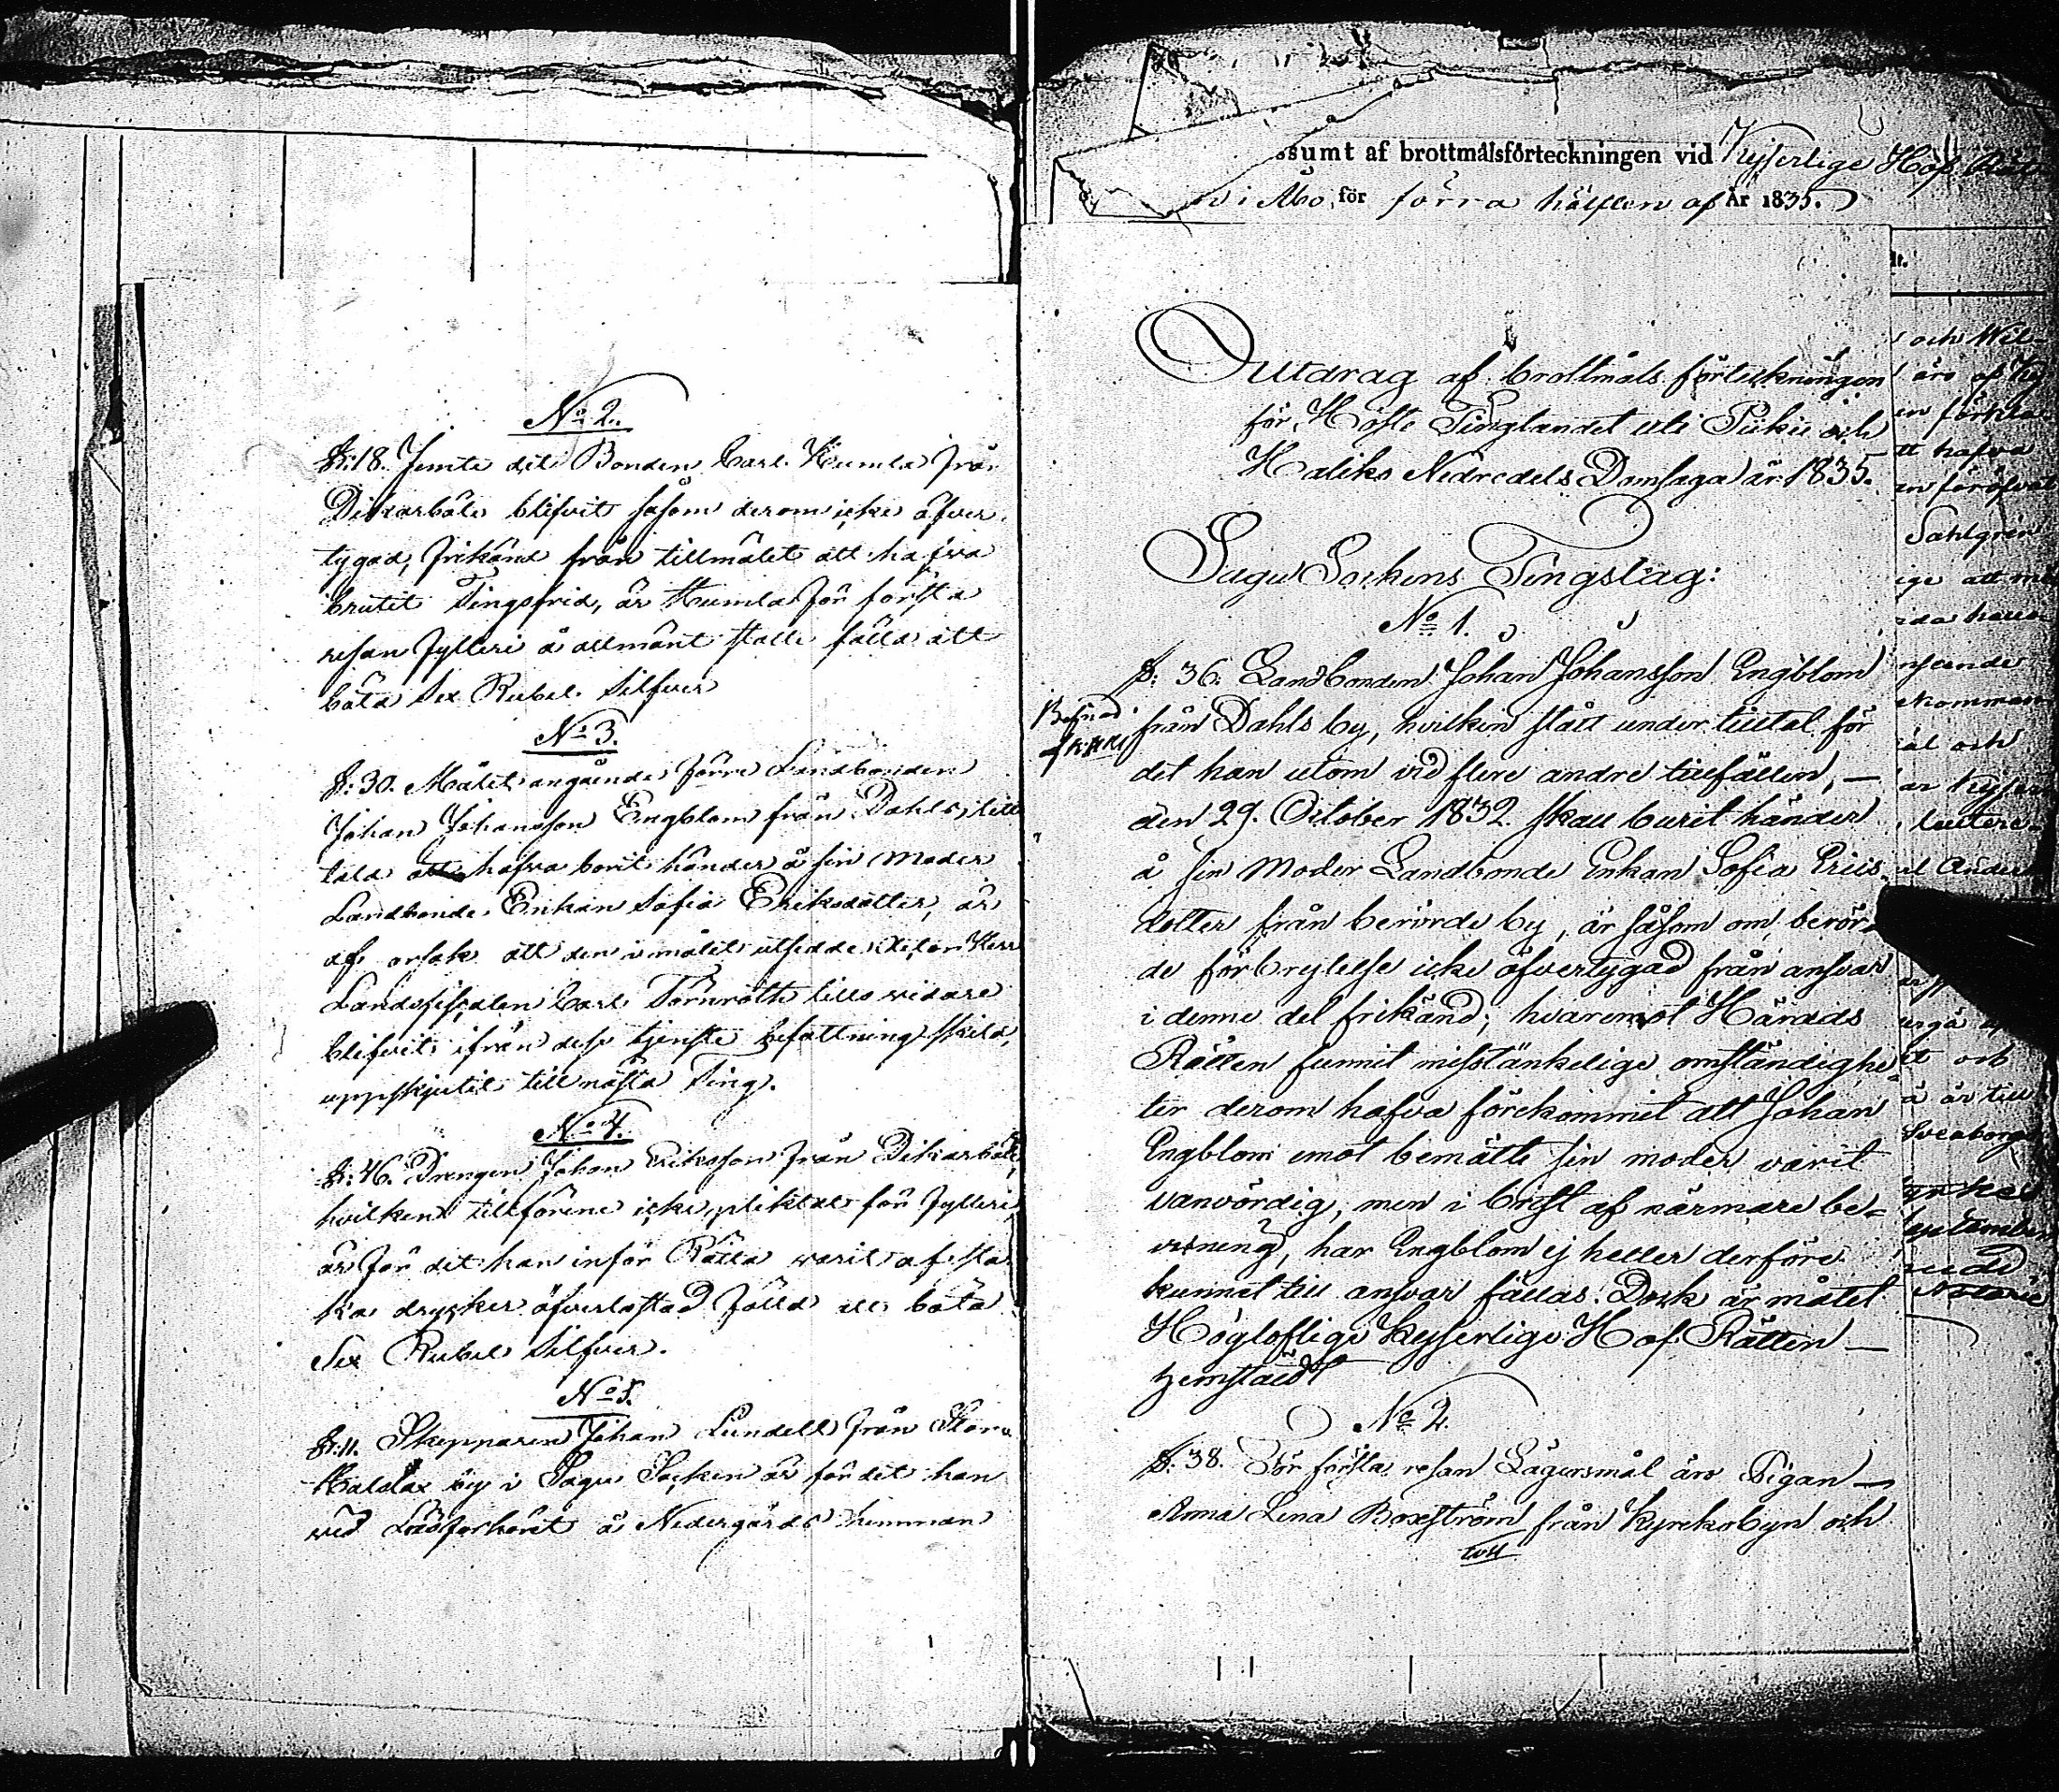 No 2.
§: 18. Jemte det Bonden Carl Humla från
Dikarböle blifvit såsom derom icke öfver-
tygad, frikänd från tillmälet att hafva
brutit Tingsfrid, är Humla för första
resan fylleri å allmänt ställe fälld att
böta Sex Rubel Silfver
No 3.
§: 30. Målet angående förre Landbonden
Johan Johansson Engblom från Dahls, till
tald hafva borit händer å sin Moder
Landbonde Enkan Sofia Eriksdotter, är
af orsak att den i målet utsedde
Landsfiscalen Carl Törnroth tills vidare
blifvit ifrån dess tjenste befattning skild,
uppskjutit till nästa Ting.
No 4.
§: 46. Drengen Johan Eriksson från Dikarböle,
hvilken tillförene icke pliktat för fylleri,
är för det han inför Rätta varit af star
ka drycker öfverlastad fälld att böta
Sex Rubel Silfver.
No 5.
§: 11. Skepparen Johan Lundell från Stora
by i Sagu Socken är för det han
vid å Nedergårds hemman
ssumt af brottmålsförteckningen vid Kejserlige Hof Rätt
i Åbo, för förra hälften af År 1835.
Utdrag af brottmåls förteckningen
för Höste Tinglandet uti Pikie och
Haliko Nedredels Domsaga år 1835.
Sagu Sockens Tingslag:
No 1.
§: 36. Landbonden Johan Johansson Engblom
från Dahls by, hvilken stått under tilltal för
det han utom vid flere andre tillfällen, —
den 29. October 1832 skall burit händer
å sin Moder Landbonde Enkan Sofia Erics-
dotter från berörde by, är såsom om berör-
de förbrytelse icke öfvertygad från ansvar
i denne del frikänd; hvaremot Härads
Rätten funnit misstänkelige omständighe-
ter derom hafva förekommit att Johan
Engblom emot bemälte sin moder varit
vanvördig, men i brist af närmare be-
visning, har Engblom ej heller derföre
kunnat till ansvar fällas. Dock är målet
Höglofliga Kejserlige Hof Rätten —
hemstäldt
No 2.
§: 38. För första resan Lägersmål äro Pigan —
Anna Lena Boxström från Kyrkobyn och
och Wil-
äro af
hafva
Sahlgrén
ige att
ål och
ergå
et och
å är till
Sveaborgs
September
Notarie